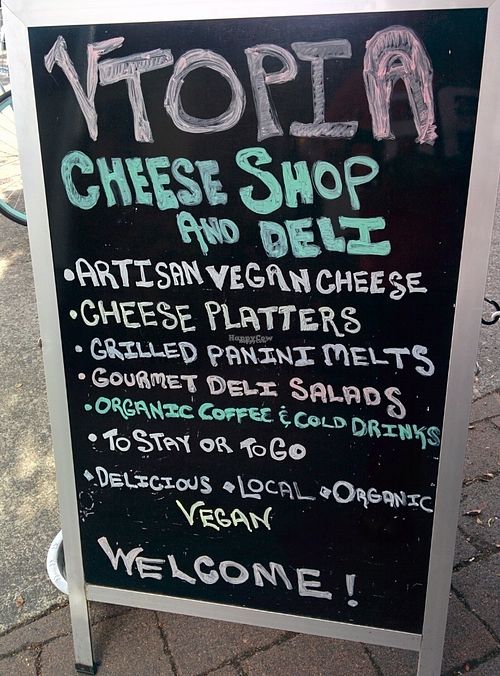 VTOPIA
CHEESE SHOP
AND DELI
•ARTISAN VEGAN CHEESE
•CHEESE PLATTERS
•GRILLED PANINI MELTS
•GOURMET DELI SALADS
•ORGANIC COFFEE & COLD DRINKS
•TO STAY OR TO GO
•DELICIOUS •LOCAL •ORGANIC
VEGAN
WELCOME!
HappyCow